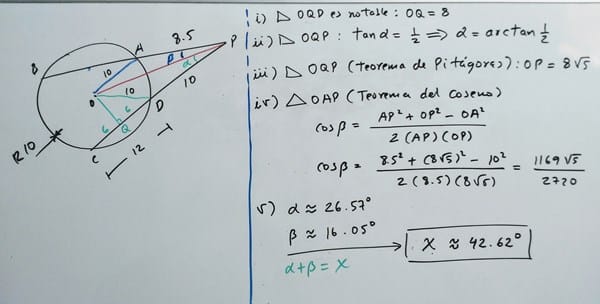 8.5
A
P
B
10
β
α
10
O
10
6
D
6
Q
C
12
R10
i) △ OQD es notable : OQ = 8
ii) △ OQP : tan α = 1/2 ⇒ α = arctan 1/2
iii) △ OQP (Teorema de Pitágoras) : OP = 8√5
iv) △ OAP (Teorema del Coseno)
cos β = AP² + OP² − OA² / 2 (AP) (OP)
cos β = 8.5² + (8√5)² − 10² / 2 (8.5) (8√5) = 1169 √5 / 2720
v) α ≈ 26.57°
β ≈ 16.05°
α + β = X
X ≈ 42.62°